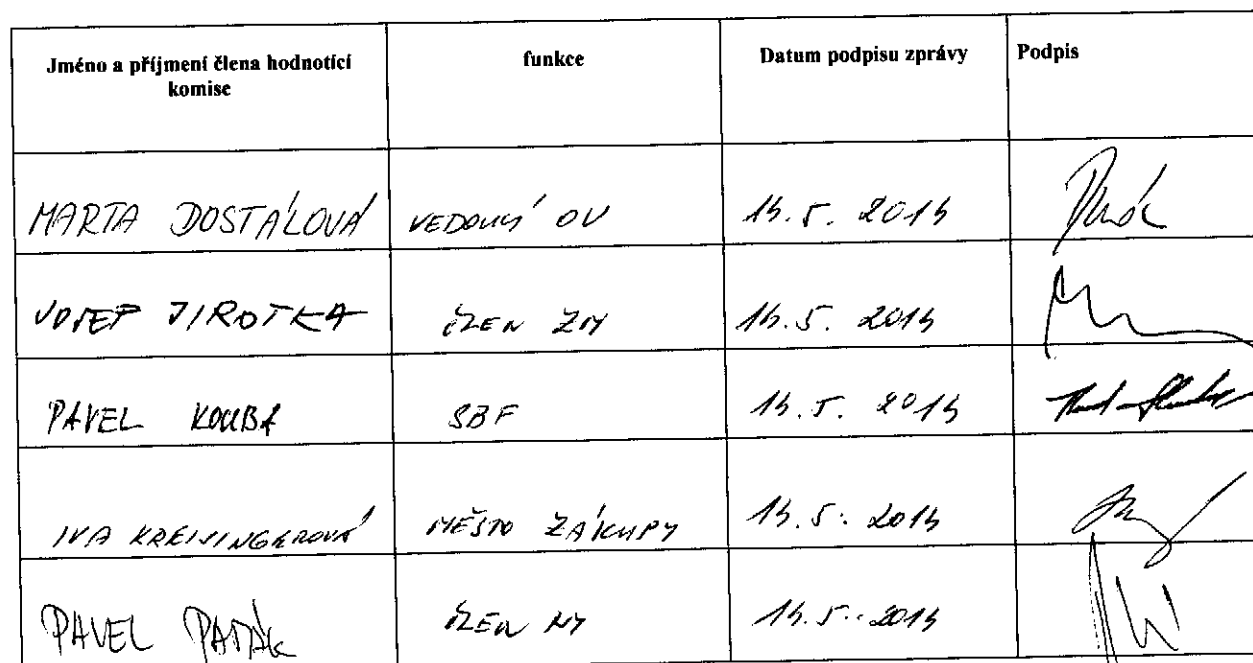 Jméno a příjmení člena hodnotící komise funkce Datum podpisu zprávy Podpis
MARTA DOSTÁLOVÁ VEDOUCÍ OV 14.5. 2014
JOSEF JIROTKA ČLEN ZM 14.5. 2014
PAVEL KOUBA SBF 14.5. 2014
IVA KREISINGEROVÁ MĚSTO ZÁKUPY 14.5. 2014
PAVEL ČLEN 14.5. 2014